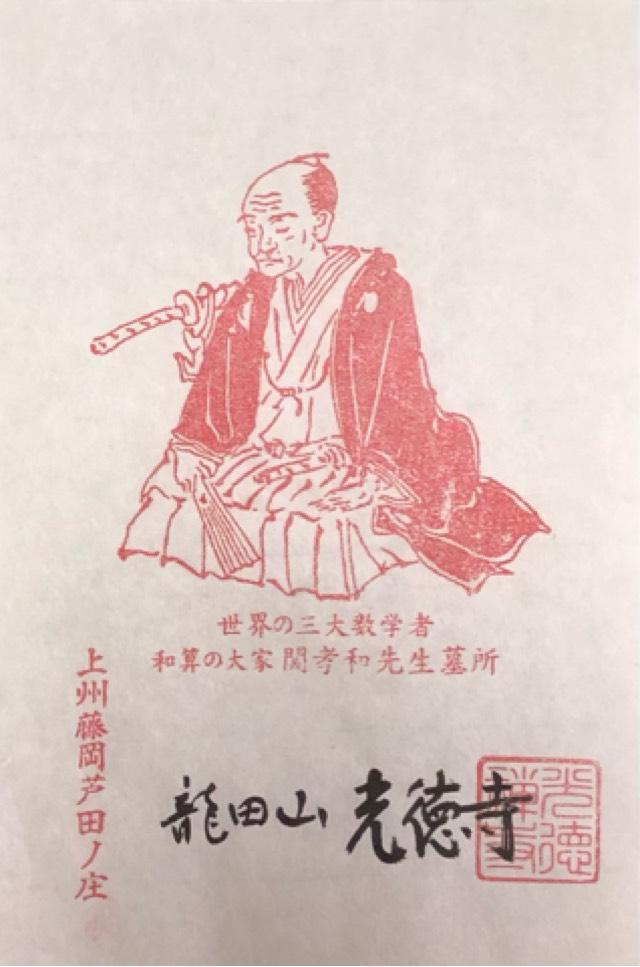 世界の三大数学者
和算の大家 関孝和先生墓所
上州藤岡芦田ノ庄
龍田山 光徳寺
光徳禅寺